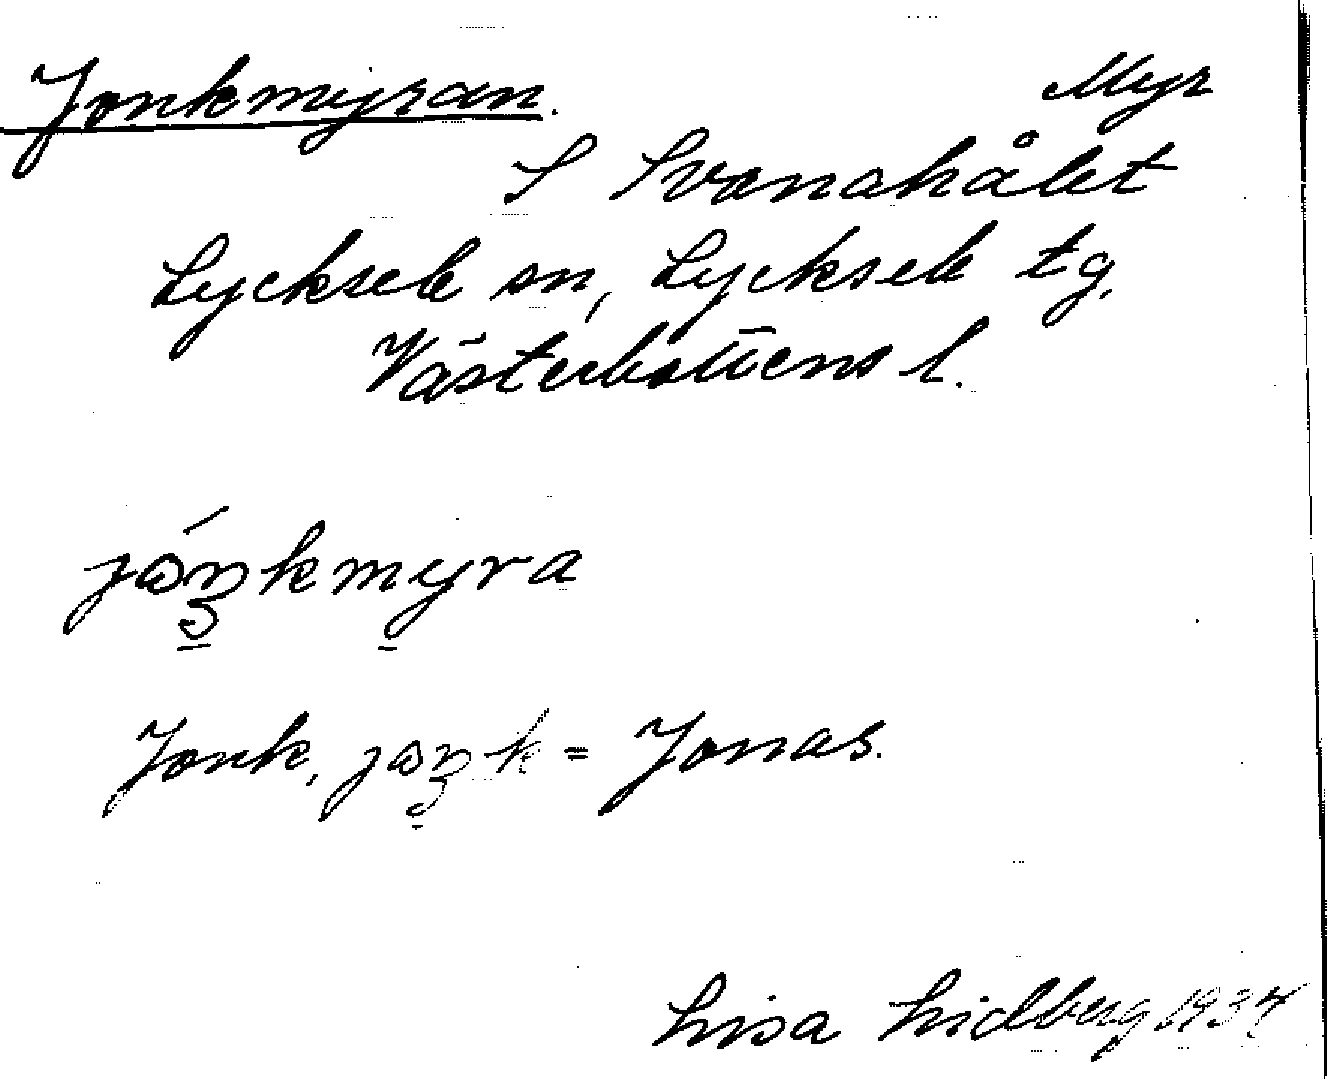 Jonkmyran. Myr
S Svanahålet
Lycksele sn, Lycksele tg,
Västerbottens l.
jóŋkmyra
Jonk, joŋk = Jonas.
Lisa Lidberg 1934